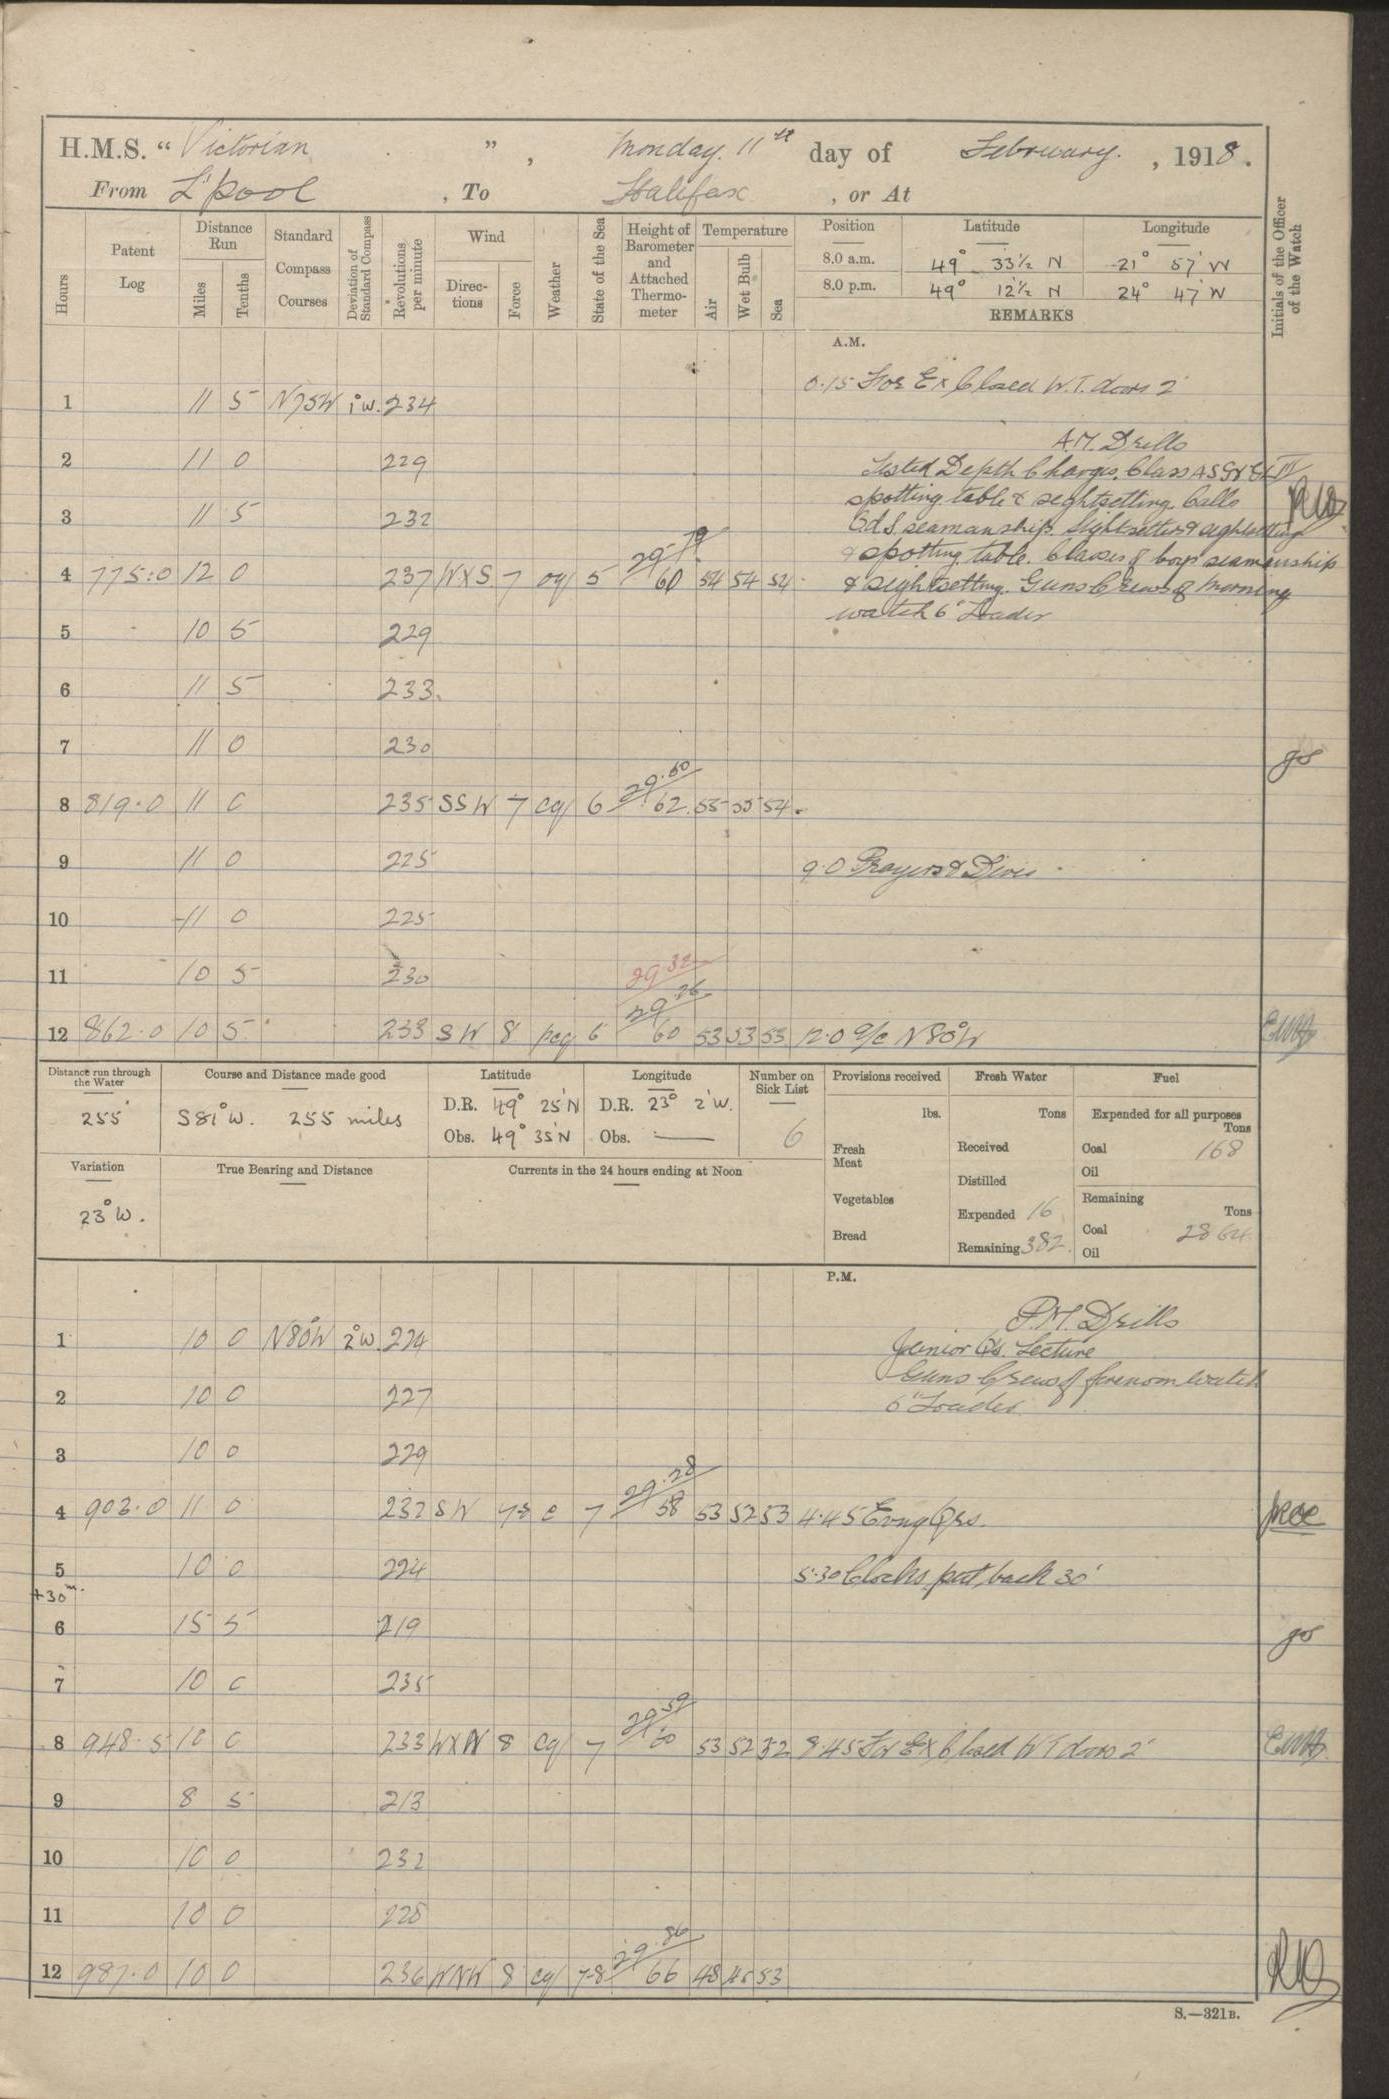 H.M.S. “ Victorian ” , Monday. 11th day of February. , 1918.
From L'pool , To Halifax , or At
Hours
Patent Log
Distance Run
Miles
Tenths
Standard Compass Courses
Deviation of Standard Compass
Revolutions per minute
Wind
Directions
Force
Weather
State of the Sea
Height of Barometer and Attached Thermometer
Temperature
Air
Wet Bulb
Sea
Position Latitude Longitude
8.0 a.m. 49° 33½ N 21° 57' W
8.0 p.m. 49° 12½ N 24° 47' W
REMARKS
Initials of the Officer of the Watch
A.M.
0.15 For Ex Closed W.T. doors 2'
1 11 5 N75W 1°W. 234
A.M. Drills
2 11 0 229
Tested Depth Charges. Class A.S.
spotting table & sightsetting. Calls
3 11 5 232
seamanship. Sightsetters & sightsetting
& spotting table. Classes of boys seamanship
4 775.0 12 0 237 WXS 7 og 5 29. 60 54 54 54
& sightsetting. Guns Crews of morning
watch 6" Loader
5 10 5 229
6 11 5 233
7 11 0 230
8 819.0 11 0 235 SSW 7 cq 6 29.60 62 55 55 54
9 11 0 225 9.0 Prayers & Divis
10 11 0 225
11 10 5 230
29.32
12 862.0 10 5 233 SW 8 pcq 6 29.26 60 53 53 53 12.0 a/c N80°W
Distance run through the Water
255'
Course and Distance made good
S81°W. 255 miles
Latitude
D.R. 49° 25'N
Obs. 49° 35'N
Longitude
D.R. 23° 2'W.
Obs. —
Number on Sick List
6
Provisions received
lbs.
Fresh Meat
Vegetables
Bread
Fresh Water
Tons
Received
Distilled
Expended 16
Remaining 382.
Fuel
Expended for all purposes
Tons
Coal 168
Oil
Remaining
Tons
Coal 2864
Oil
Variation
23°W.
True Bearing and Distance
Currents in the 24 hours ending at Noon
P.M.
P.M. Drills
1 10 0 N80°W 2°W. 224
Junior Lecture
Guns Crews of forenoon watch
2 10 0 227
6" Loader
3 10 0 229
4 903.0 11 0 232 SW 7-8 c 7 29.28 58 53 52 53 4.45 Evng Qrs.
5 10 0 224 5.30 Clocks put back 30'
+30m.
6 15 5 219
7 10 0 235
8 948.5 10 0 233 WXN 8 cq 7 29.59 60 53 52 52 8.45 For Ex Closed W T doors 2'
9 8 5 213
10 10 0 232
11 10 0 228
12 987.0 10 0 236 WNW 8 cq 7-8 29.86 66 48 46 53
S.—321B.